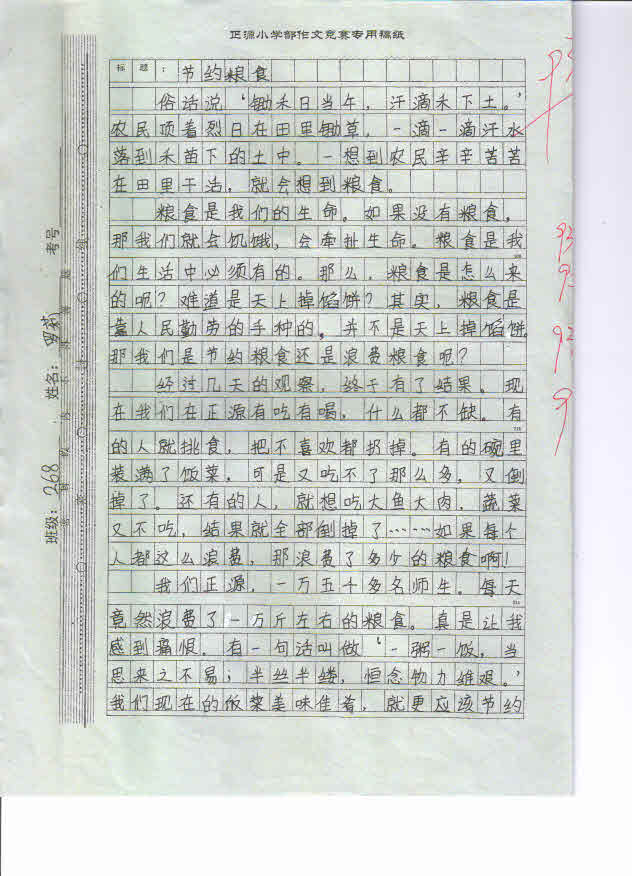 正源小学部作文竞赛专用稿纸
标题:节约粮食
俗话说‘锄禾日当午,汗滴禾下土。’
农民顶着烈日在田里锄草,一滴一滴汗水
落到禾苗下的土中。一想到农民辛辛苦苦
在田里干活,就会想到粮食。
粮食是我们的生命。如果没有粮食,
那我们就会饥饿,会牵扯生命。粮食是我
们生活中必须有的。那么,粮食是怎么来
的呢?难道是天上掉馅饼?其实,粮食是
靠人民勤劳的手种的。并不是天上掉馅饼。
那我们是节约粮食还是浪费粮食呢?
经过几天的观察,终于有了结果。现
在我们在正源有吃有喝,什么都不缺。有
的人就挑食,把不喜欢都扔掉。有的碗里
装满了饭菜,可是又吃不了那么多,又倒
掉了。还有的人,就想吃大鱼大肉,蔬菜
又不吃,结果就全部倒掉了……如果每个
人都这么浪费,那浪费了多少的粮食啊!
我们正源,一万五十多名师生。每天
竟然浪费了一万斤左右的粮食。真是让我
感到痛恨。有一句话叫做‘一粥一饭,当
思来之不易;半丝半缕,恒念物力维艰。’
我们现在的饭菜美味佳肴,就更应该节约
班级:268 姓名: 考号
93
93
9